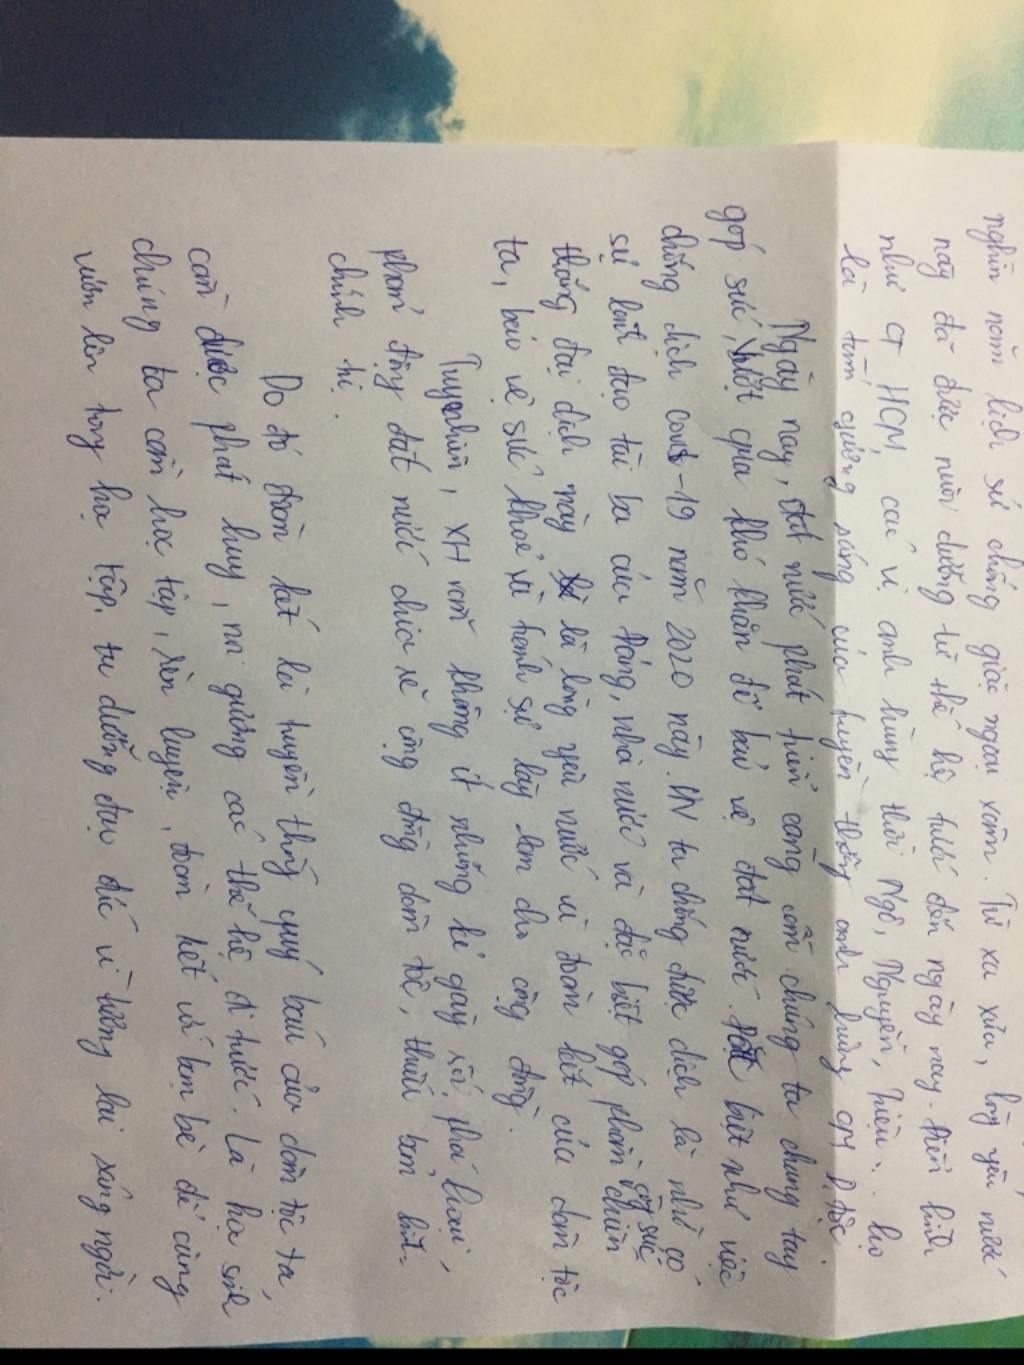 nghìn năm lịch sử chống giặc ngoại xâm. Từ xa xưa, lòng yêu nước
này đã được nuôi dưỡng từ thế hệ trước đến ngày nay. Điển hình
như CT HCM, các vị anh hùng thời Ngô, Nguyễn, Triệu.. họ
là tấm gương sáng của truyền thống anh hùng CM D.tộc
Ngày nay, đất nước phát triển càng cần chúng ta chung tay
góp sức, vượt qua khó khăn để bảo vệ đất nước. Đặc biệt như việc
chống dịch covid-19 năm 2020 này. VN ta chống được dịch là nhờ có
sự lãnh đạo tài ba của Đảng, nhà nước và đặc biệt góp phần công sức chiến
thắng đại dịch này là lòng yêu nước và đoàn kết của dân tộc
ta, bảo vệ sức khoẻ và hành sự hãy làm cho cộng đồng.
Tuy nhiên, XH vẫn không ít những kẻ gây rối, phá hoại,
phản động đất nước chia rẽ cộng đồng dân tộc, thiếu bản lĩnh
chính trị.
Do đó đoàn kết là truyền thống quý báu của dân tộc ta,
cần được phát huy, noi gương các thế hệ đi trước. Là học sinh
chúng ta cần học tập, rèn luyện, đoàn kết với bạn bè để cùng
vươn lên trong học tập, tu dưỡng đạo đức vì tương lai xáng ngời.